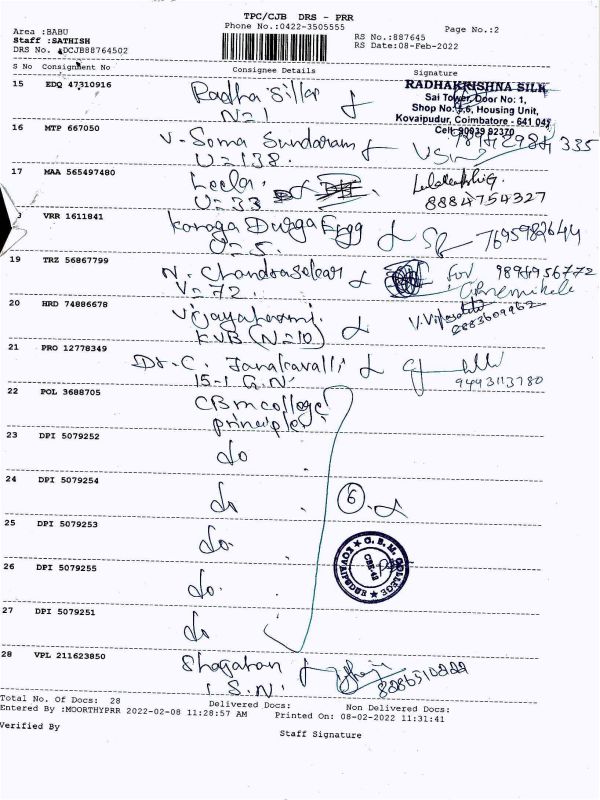 TPC/CJB DRS - PRR
Phone No.:0422-3505555
Page No.:2
Area :BABU
Staff :SATHISH
DRS No. :DCJB88764502
RS No.:887645
RS Date:08-Feb-2022
S No Consignment No Consignee Details Signature
15 EDQ 47310916 Radha Silks
N=1
RADHAKRISHNA SILK
Sai Tower, Door No: 1,
Shop No: 5,6, Housing Unit,
Kovaipudur, Coimbatore - 641 042
Cell: 90039 92370
16 MTP 667050 V. Soma Sundaram
U=138.
17 MAA 565497480 Leela.
U=33
8884754327
VRR 1611841 Konga Durga Engg
U=5.
7695982644
19 TRZ 56867799 N. Chandrasekar for
V=72.
20 HRD 74886678 Vijayalaxmi.
KVB (N=10)
8883609962
21 PRO 12778349 Dr. C. Janakavalli
15-1 G.N.
9443113780
22 POL 3688705 CBM college
principle
23 DPI 5079252 do
24 DPI 5079254 do
6
25 DPI 5079253 do.
C. B. M. COLLEGE ★ KOVAIPUDUR ★
CBE-42
26 DPI 5079255 do.
27 DPI 5079251 do
28 VPL 211623850
S.N.
Total No. Of Docs: 28 Delivered Docs: Non Delivered Docs:
Entered By :MOORTHYPRR 2022-02-08 11:28:57 AM Printed On: 08-02-2022 11:31:41
Verified By
Staff Signature